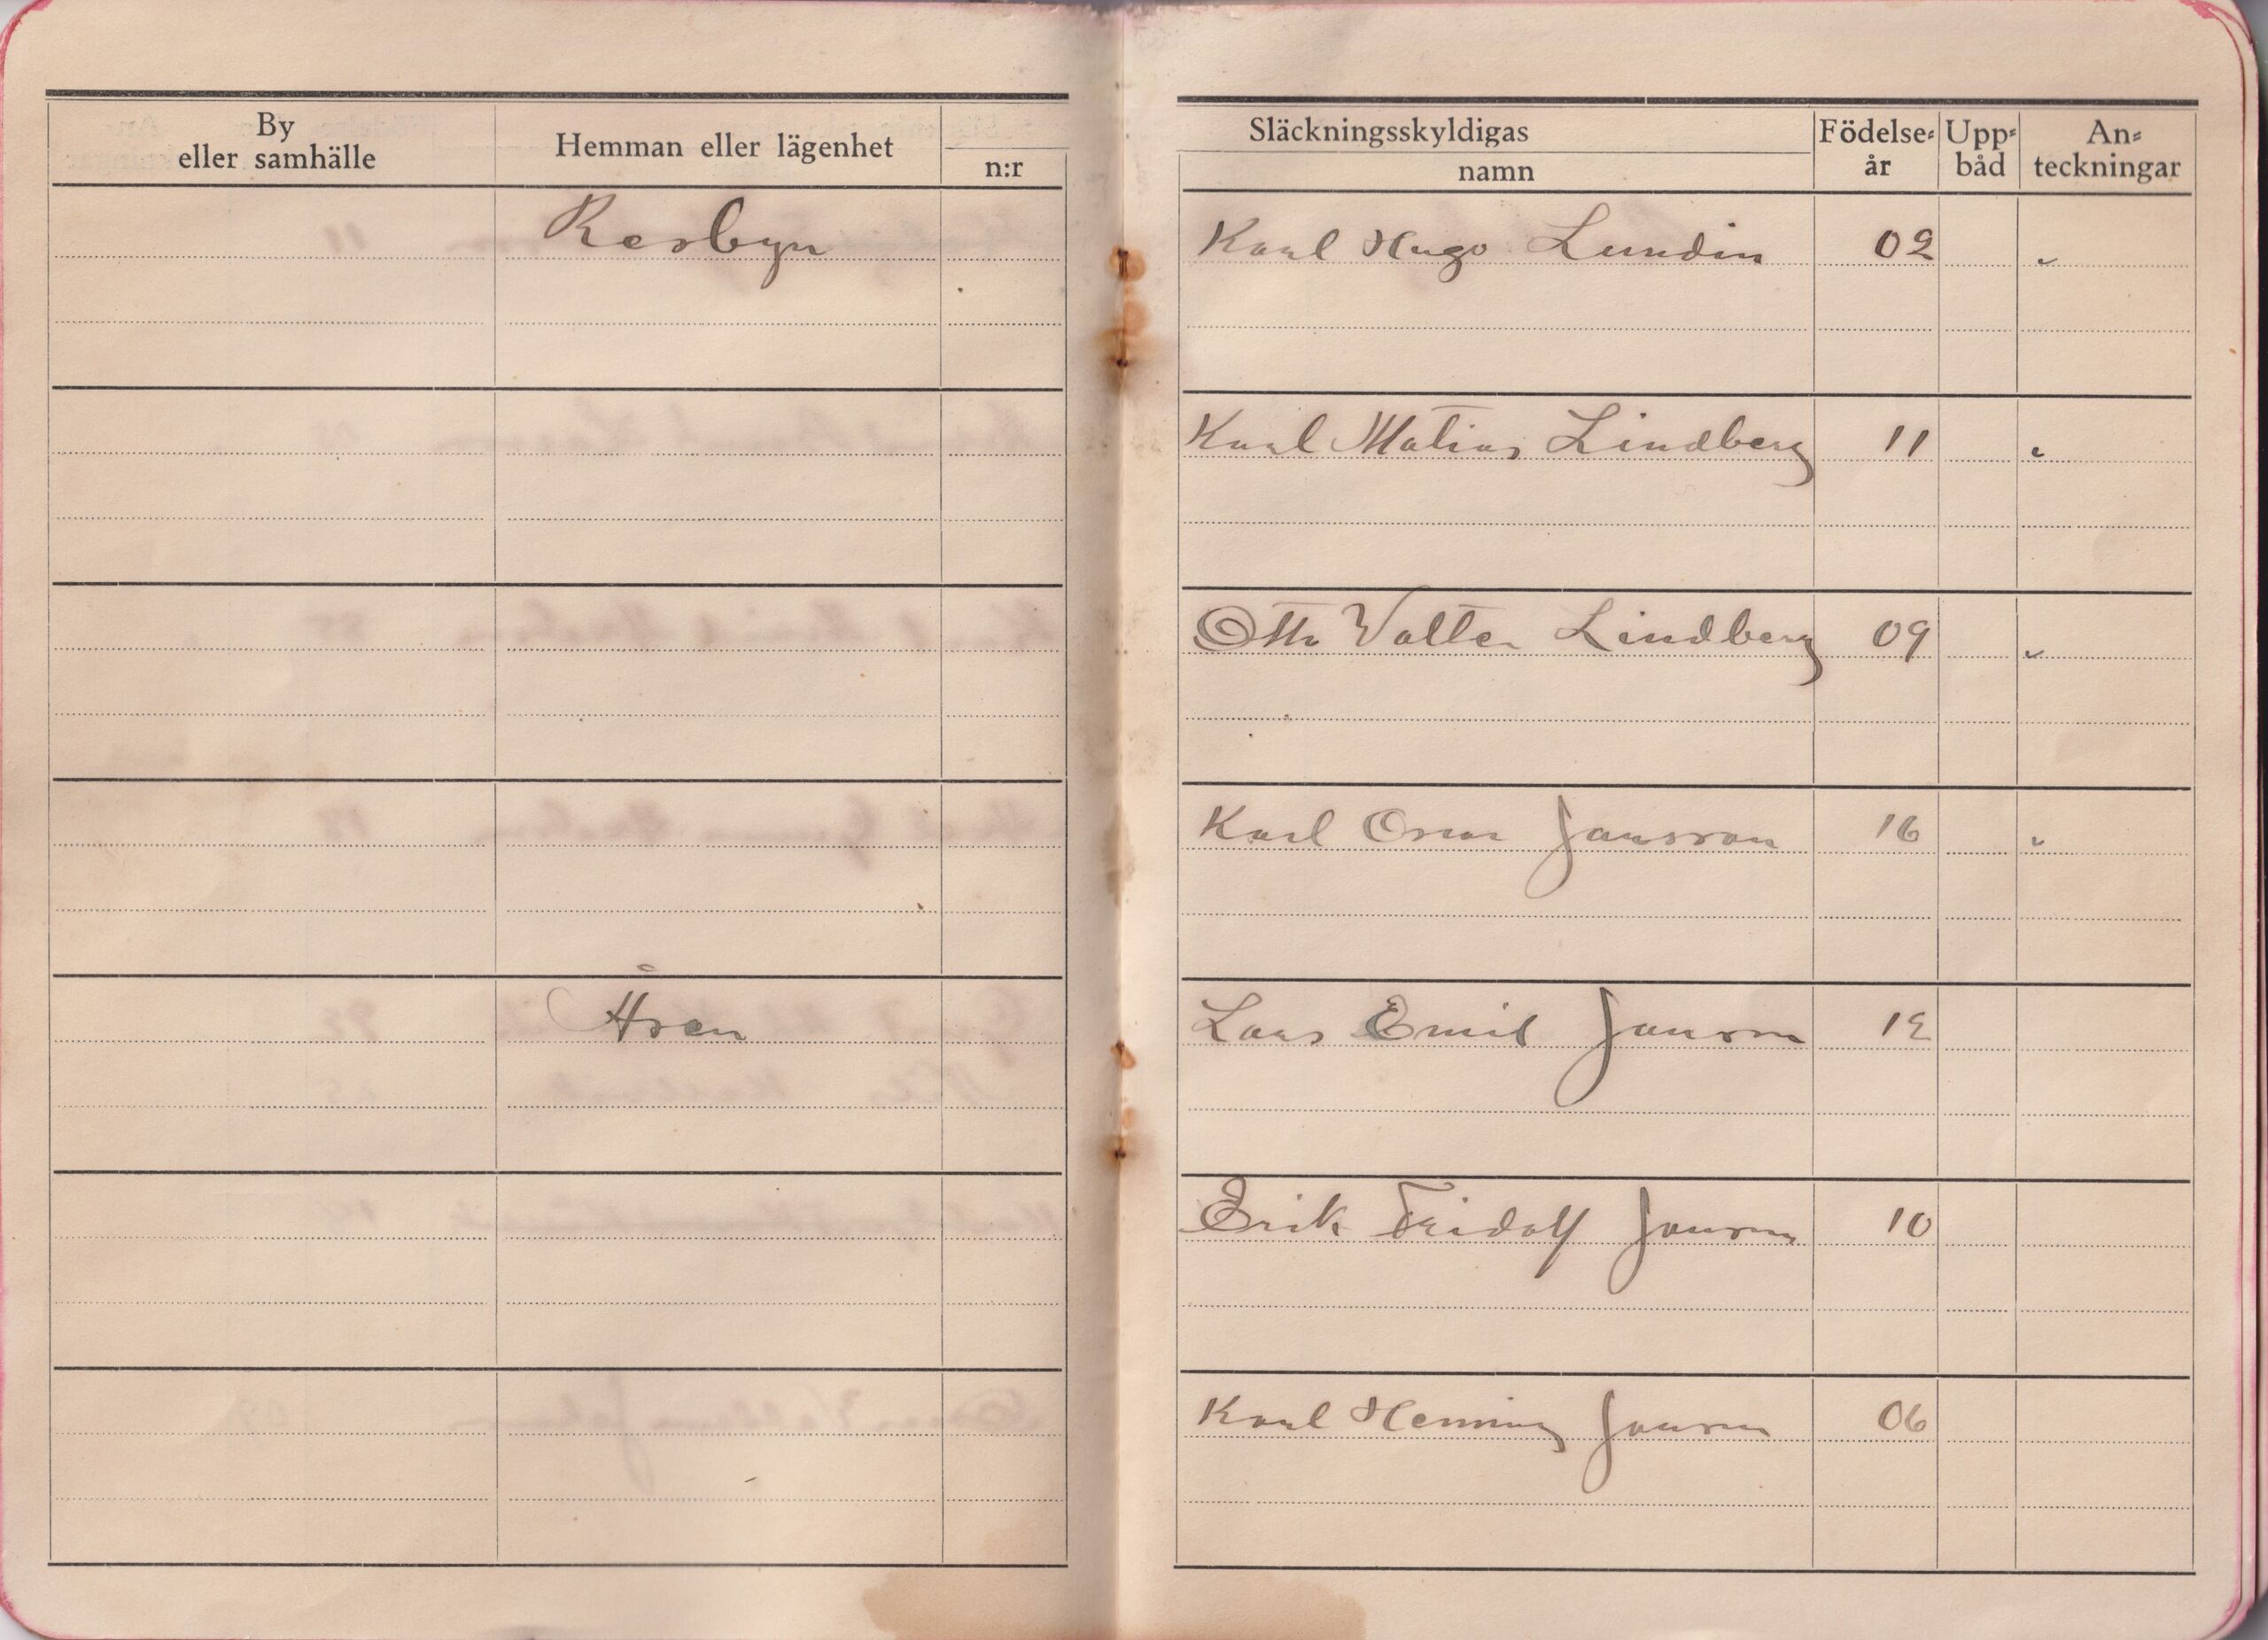 By
eller samhälle
Hemman eller lägenhet
n:r
Släckningsskyldigas
namn
Födelse-
år
Upp-
båd
An-
teckningar
Resbyn Karl Hugo Lundin 02 "
Karl Matias Lindberg 11 "
Otto Valter Lindberg 09 "
Karl Oscar Jansson 16 "
Åsen Lars Emil Janson 12
Erik Fridolf Janson 10
Karl Henning Janson 06